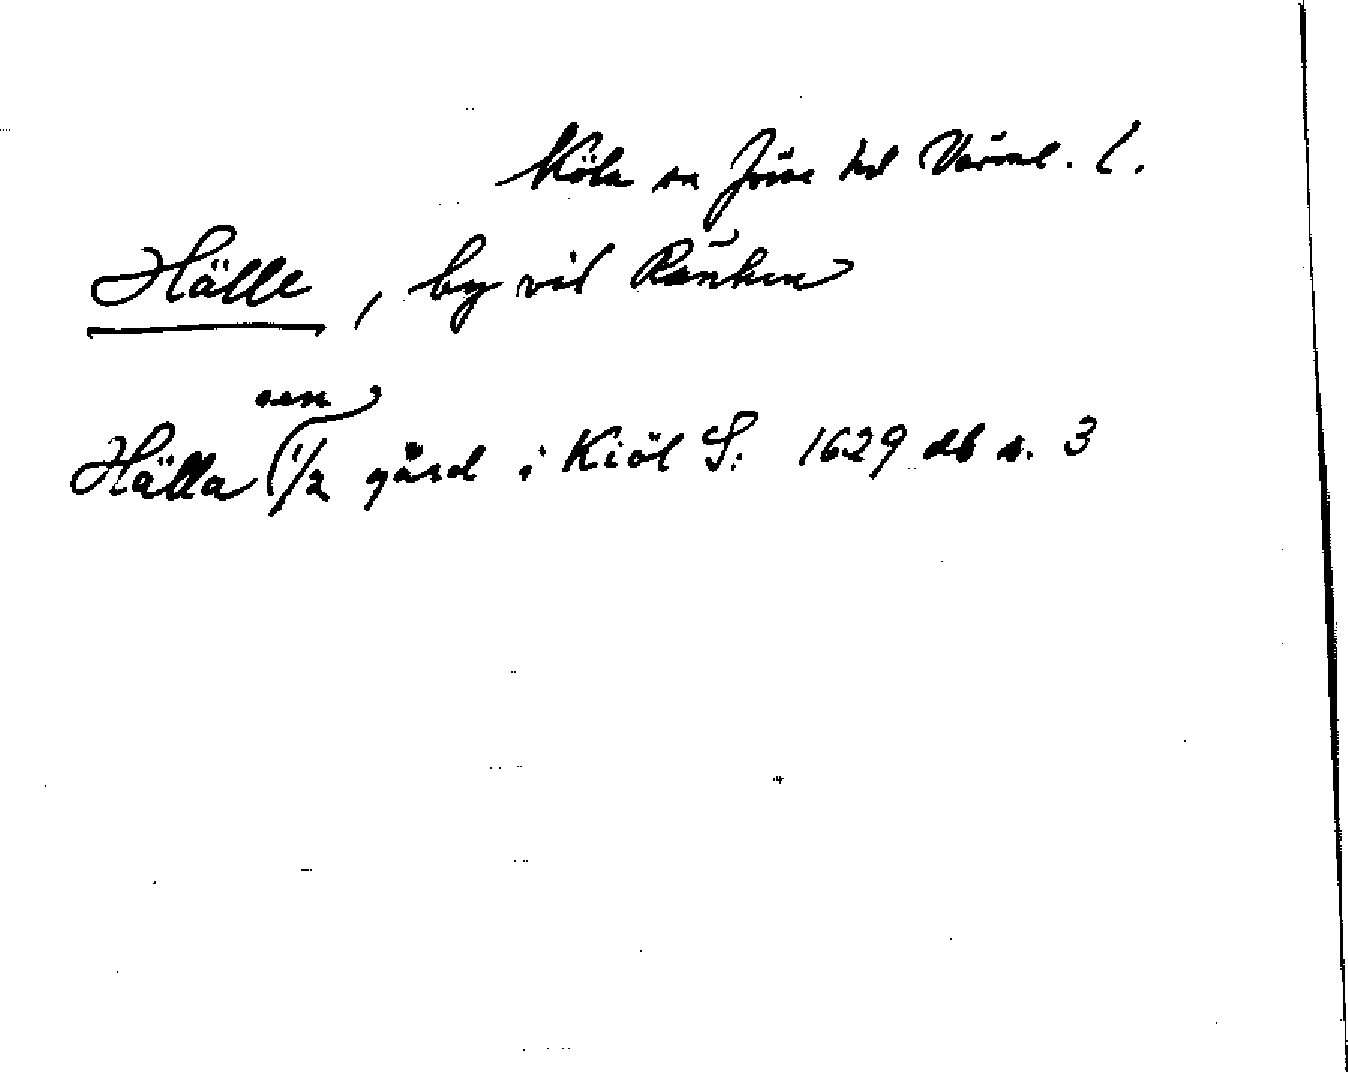 Köla sn Jösse hd Värml. l.
Hälle, by vid Ränken
sen
Hälla 1/2 gård i Kiöl S: 1629 db s. 3